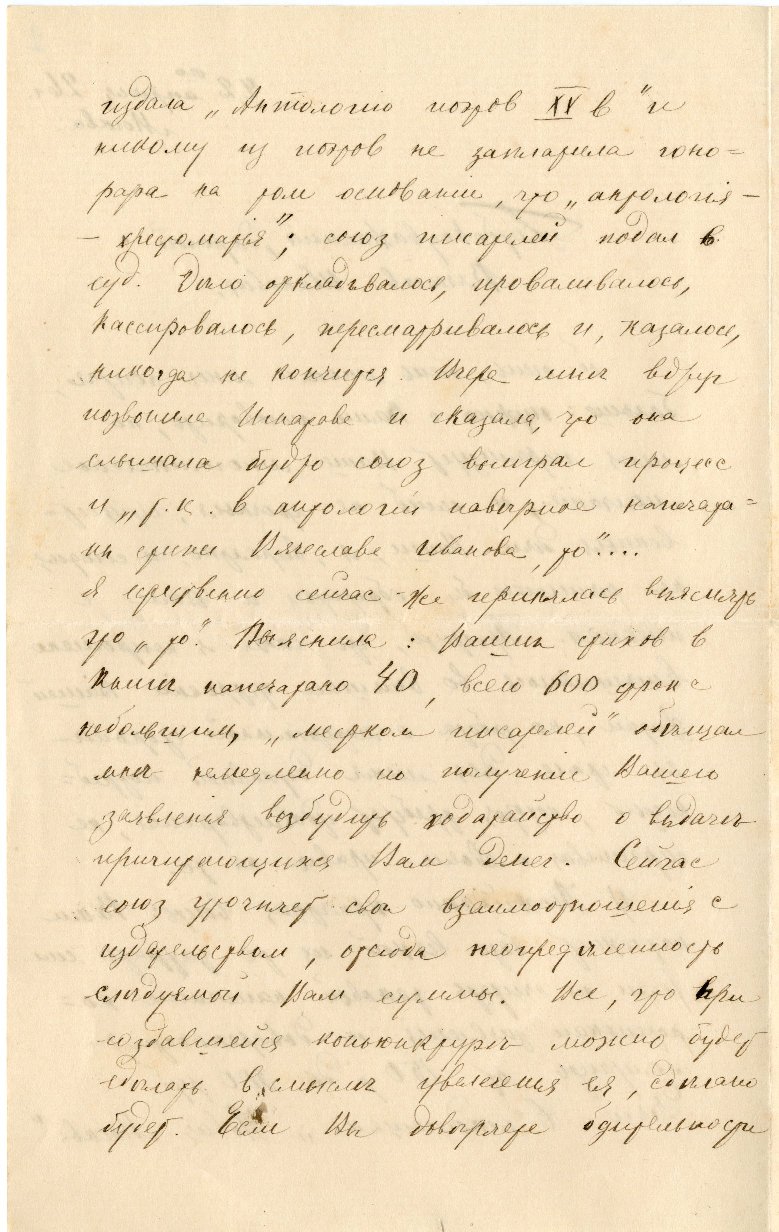 издала „Антологію поэтов XX в" и
никому из поэтов не заплатила гоно=
рара на том основаніи, что „антологія—
— хрестоматія"; союз писателей подал в
суд. Дѣло откладывалось, проваливалось,
кассировалось, пересматривалось и, казалось,
никогда не кончится. Вчера мнѣ вдруг
позвонила Шкапова и сказала, что она
слышала будто союз выиграл процесс
и „т. к. в антологіи навѣрное напечата=
ны стихи Вячеслава Иванова, то"....
Я естественно сейчас-же принялась выяснять
это „то". Выяснила: Ваших стихов в
книгѣ напечатано 40, всего 600 строк с
небольшим, „местком писателей" обѣщал
мнѣ немедленно по полученіи Вашего
заявленія возбудить ходатайство о выдачѣ
причитающихся Вам денег. Сейчас
союз уточняет свои взаимоотношенія с
издательством, отсюда неопредѣленность
слѣдуемой Вам суммы. Все, что при
создавшейся конъюнктурѣ можно будет
сдѣлать в смыслѣ увеличенія ея, сдѣлано
будет. Если Вы довѣряете бдительности